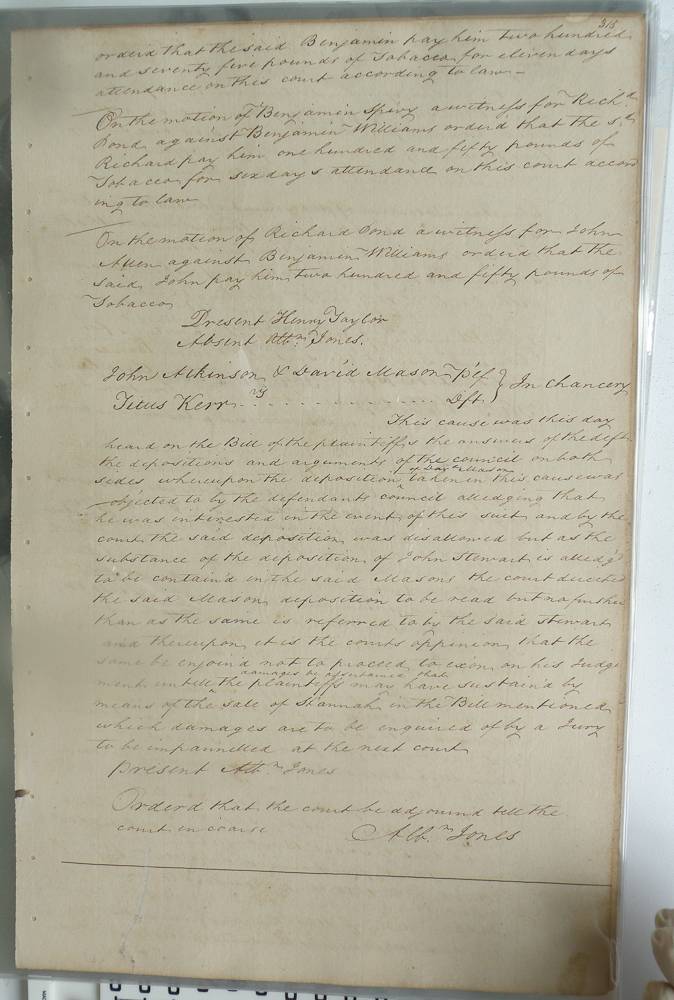 315
orderd that the said Benjamin pay him two hundred
and seventy five pounds of Tobacco for eleven days
attendance on this court according to law
On the motion of Benjamin Spivy a witness for Richd.
Pond against Benjamin Williams orderd that the sd.
Richard pay him one hundred and fifty pounds of
Tobacco for six days attendance on this court accord
ing to law
On the motion of Richard Pond a witness for John
Allen against Benjamin Williams orderd that the
said John pay him two hundred and fifty pounds of
Tobacco
Present Henry Taylor
Absent Albn. Jones.
John Atkinson & David Mason Plf } In Chancery
vs
Titus Kerr Dft
This cause was this day
heard on the Bill of the plaintiffs the answers of the deft
the depositions and arguments of the council on both
of Davd. Mason
sides whereupon the deposition taken in this cause was
objected to by the defendants council alledging that
he was interested in the event of this suit and by the
court the said deposition was disallowed but as the
substance of the deposition of John Stewart is alledg'd
to be contain'd in the said Masons the court directed
the said Mason deposition to be read but no further
than as the same is referred to by the said Stewart
and thereupon it is the courts oppinion that the
same be enjoin'd not to proceed to exon. on his Judge
damages be assertained that
ment untill the plaintiffs may have sustain'd by
means of the sale of Hannah in the Bill mentioned
which damages are to be enquired of by a Jury
to be impannelled at the next court
Present Albn. Jones
Orderd that the court be adjournd till the
court in coarse Albn. Jones